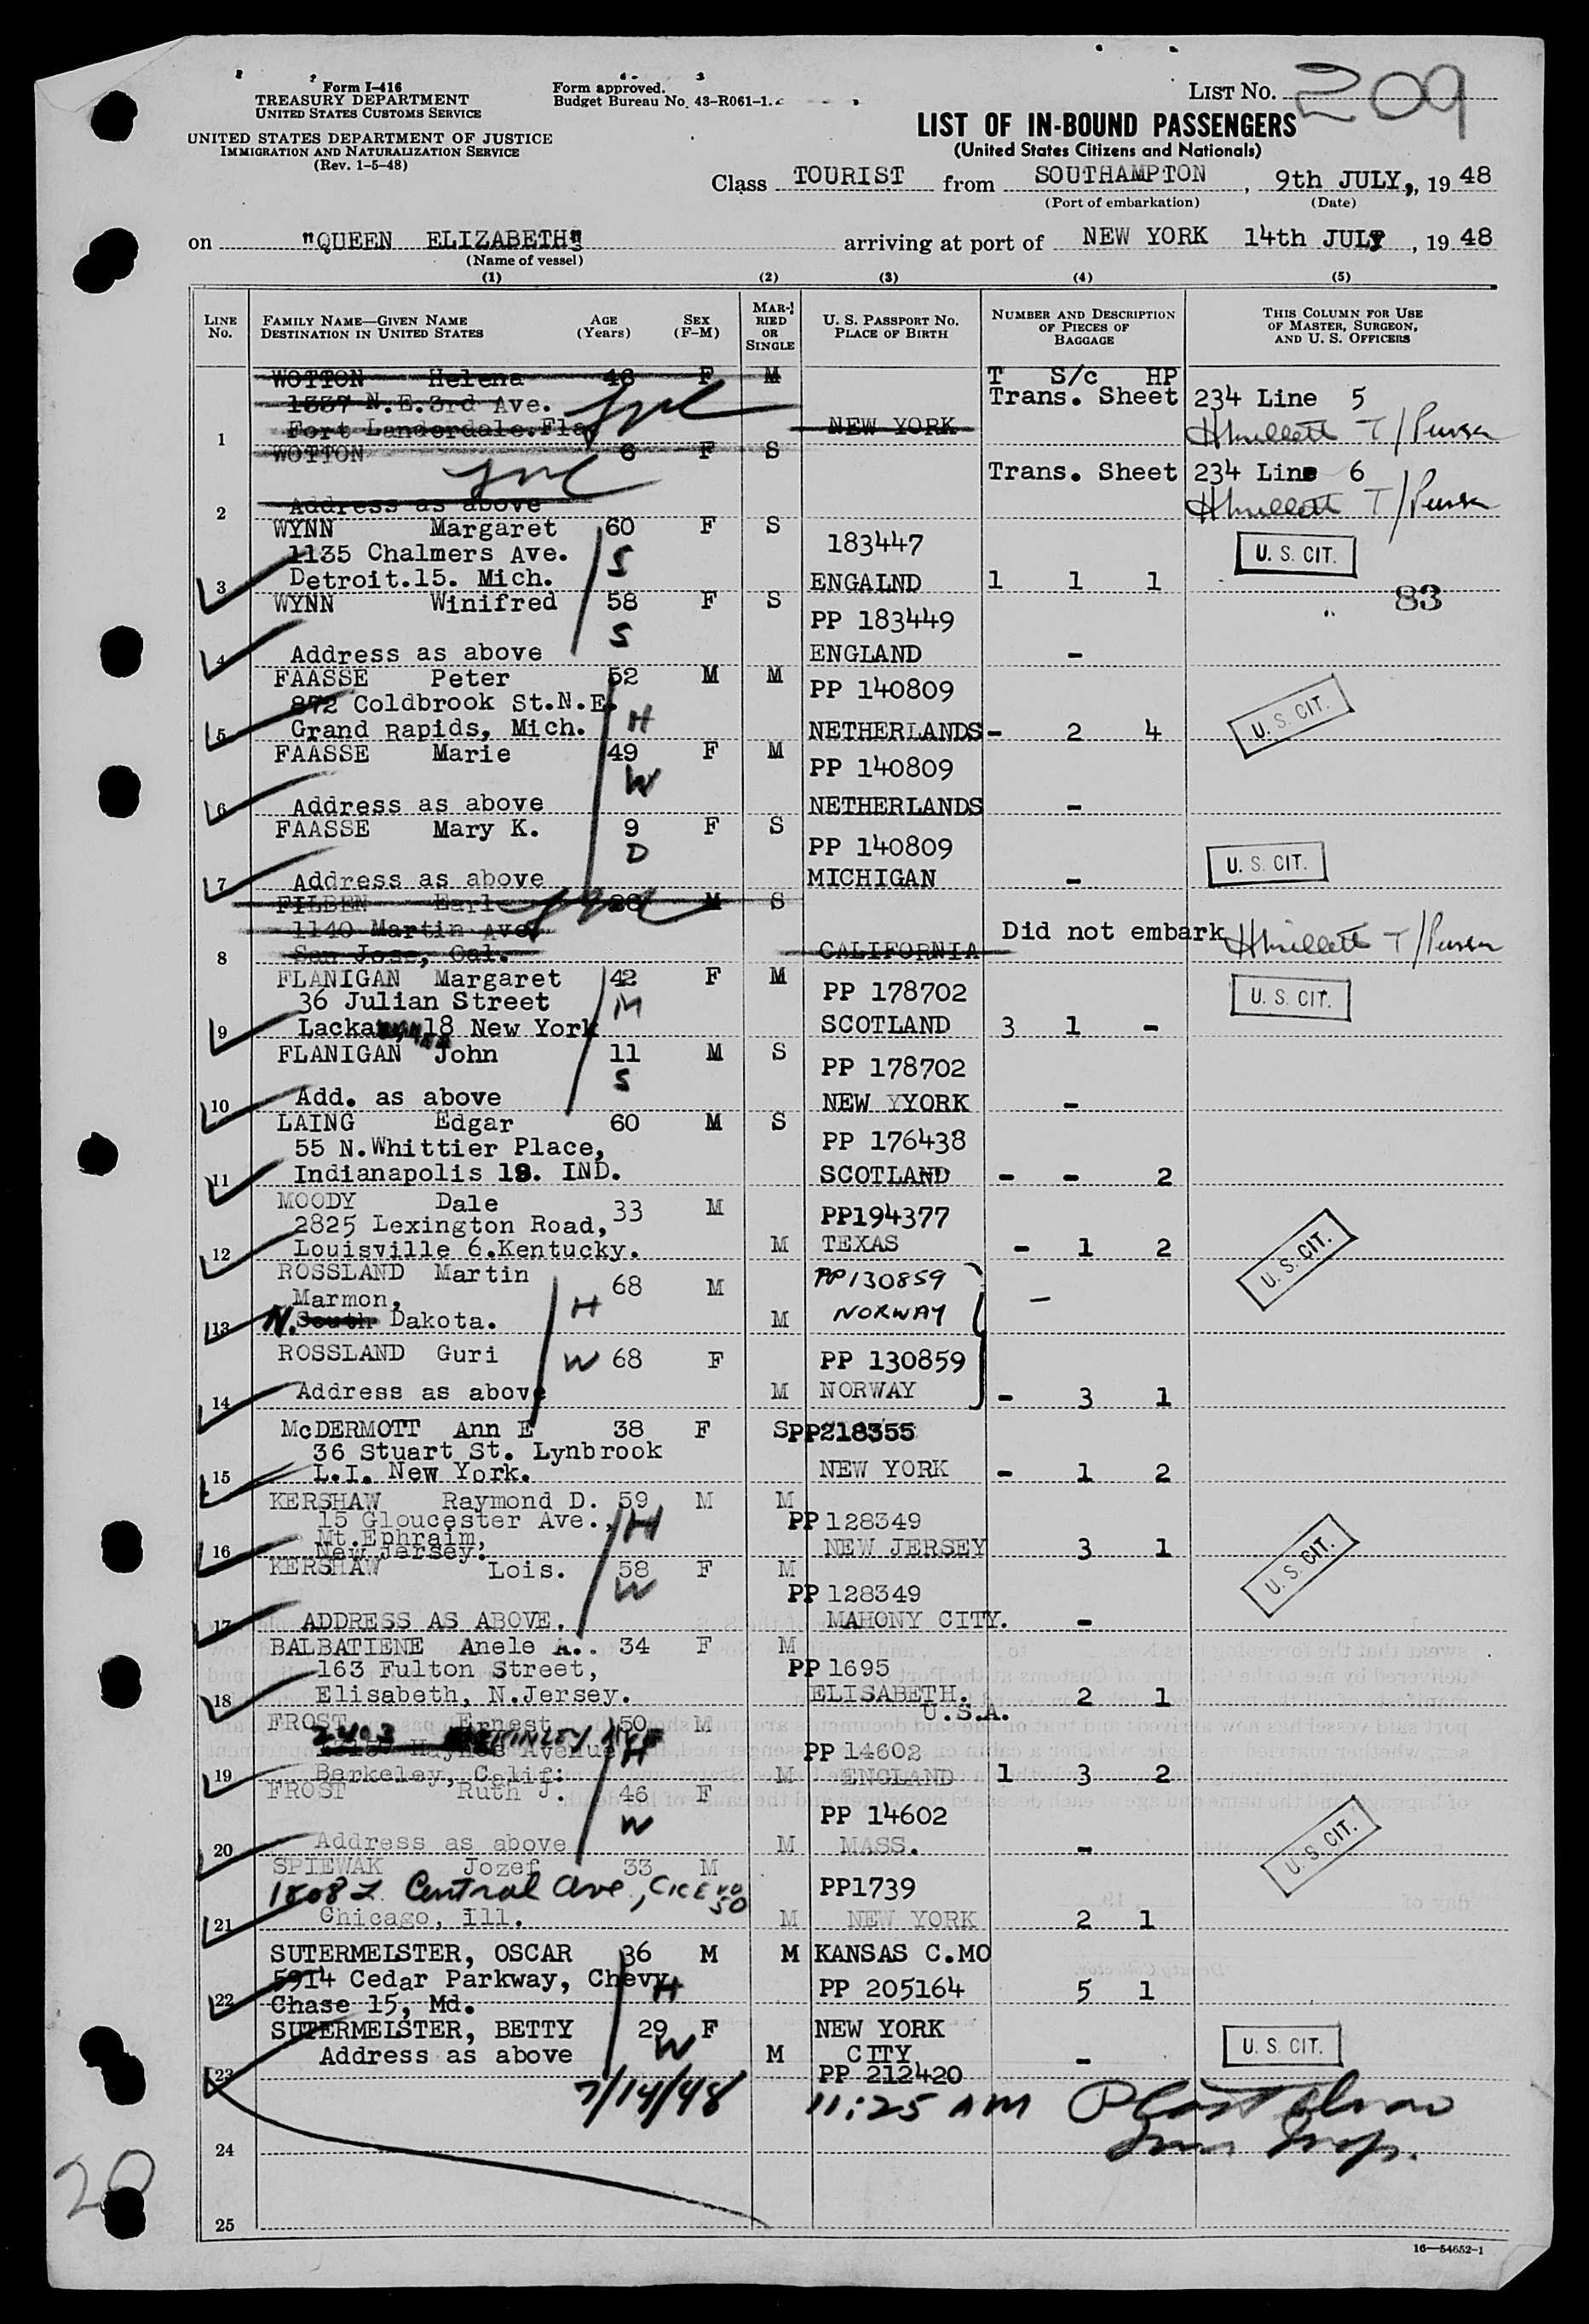 Form I-416
TREASURY DEPARTMENT
UNITED STATES CUSTOMS SERVICE
UNITED STATES DEPARTMENT OF JUSTICE
IMMIGRATION AND NATURALIZATION SERVICE
(Rev. 1-5-48)
Form approved.
Budget Bureau No. 43-R061-1.
LIST NO. 209
LIST OF IN-BOUND PASSENGERS
(United States Citizens and Nationals)
Class TOURIST from SOUTHAMPTON, 9th JULY,, 19 48
(Port of embarkation) (Date)
on "QUEEN ELIZABETH" arriving at port of NEW YORK 14th JULY, 19 48
(Name of vessel)
(1) (2) (3) (4) (5)
LINE No. FAMILY NAME—GIVEN NAME DESTINATION IN UNITED STATES AGE (Years) SEX (F-M) MARRIED OR SINGLE U. S. PASSPORT NO. PLACE OF BIRTH NUMBER AND DESCRIPTION OF PIECES OF BAGGAGE THIS COLUMN FOR USE OF MASTER, SURGEON, AND U. S. OFFICERS
WOTTON Helena 46 F M T S/c HP
1337 N.E.3rd Ave. Trans. Sheet 234 Line 5
1 Fort Landerdale.Fla. NEW YORK T/Purser
WOTTON 6 F S
Trans. Sheet 234 Line 6
2 Address as above T/Purser
WYNN Margaret 60 F S 183447
1135 Chalmers Ave. S U. S. CIT.
3 Detroit.15. Mich. ENGALND 1 1 1
WYNN Winifred 58 F S PP 183449 " 83
S
4 Address as above ENGLAND -
FAASSE Peter 52 M M PP 140809
872 Coldbrook St.N.E. H U. S. CIT.
5 Grand Rapids, Mich. NETHERLANDS - 2 4
FAASSE Marie 49 F M PP 140809
W
6 Address as above NETHERLANDS -
FAASSE Mary K. 9 F S PP 140809
D U. S. CIT.
7 Address as above MICHIGAN -
FILBEN Earl 28 M S
1140 Martin Ave. Did not embark T/Purser
8 San Jose, Cal. CALIFORNIA
FLANIGAN Margaret 42 F M PP 178702
36 Julian Street M U. S. CIT.
9 18 New York SCOTLAND 3 1 -
FLANIGAN John 11 M S PP 178702
S
10 Add. as above NEW YYORK -
LAING Edgar 60 M S PP 176438
55 N.Whittier Place,
11 Indianapolis 19. IND. SCOTLAND - - 2
MOODY Dale 33 M PP194377
2825 Lexington Road,
12 Louisville 6.Kentucky. M TEXAS - 1 2 U. S. CIT.
ROSSLAND Martin 68 M PP130859
Marmon, H NORWAY —
13 N. South Dakota. M
ROSSLAND Guri W 68 F PP 130859
14 Address as above M NORWAY - 3 1
McDERMOTT Ann E 38 F S PP218355
36 Stuart St. Lynbrook
15 L.I. New York. NEW YORK - 1 2
KERSHAW Raymond D. 59 M M
15 Gloucester Ave., H PP 128349
Mt.Ephraim,
16 New Jersey. NEW JERSEY 3 1 U. S. CIT.
KERSHAW Lois. 58 F M
W PP 128349
17 ADDRESS AS ABOVE. MAHONY CITY. -
BALBATIENE Anele A.. 34 F M
163 Fulton Street, PP 1695
18 Elisabeth, N.Jersey. ELISABETH. U.S.A. 2 1
FROST Ernest 50 M
2403 Avenue H PP 14602
19 Berkeley, Calif: M ENGLAND 1 3 2
FROST Ruth J. 46 F
W PP 14602
20 Address as above M MASS. - U. S. CIT.
SPIEWAK Jozef 33 M
Central Ave, PP1739
21 Chicago, Ill. M NEW YORK 2 1
SUTERMEISTER, OSCAR 36 M M KANSAS C.MO
5914 Cedar Parkway, Chevy H PP 205164 5 1
22 Chase 15, Md.
SUTERMEISTER, BETTY 29 F NEW YORK
Address as above W M CITY - U. S. CIT.
23 PP 212420
7/14/48 11:25 AM
24
25
20
16—54652-1